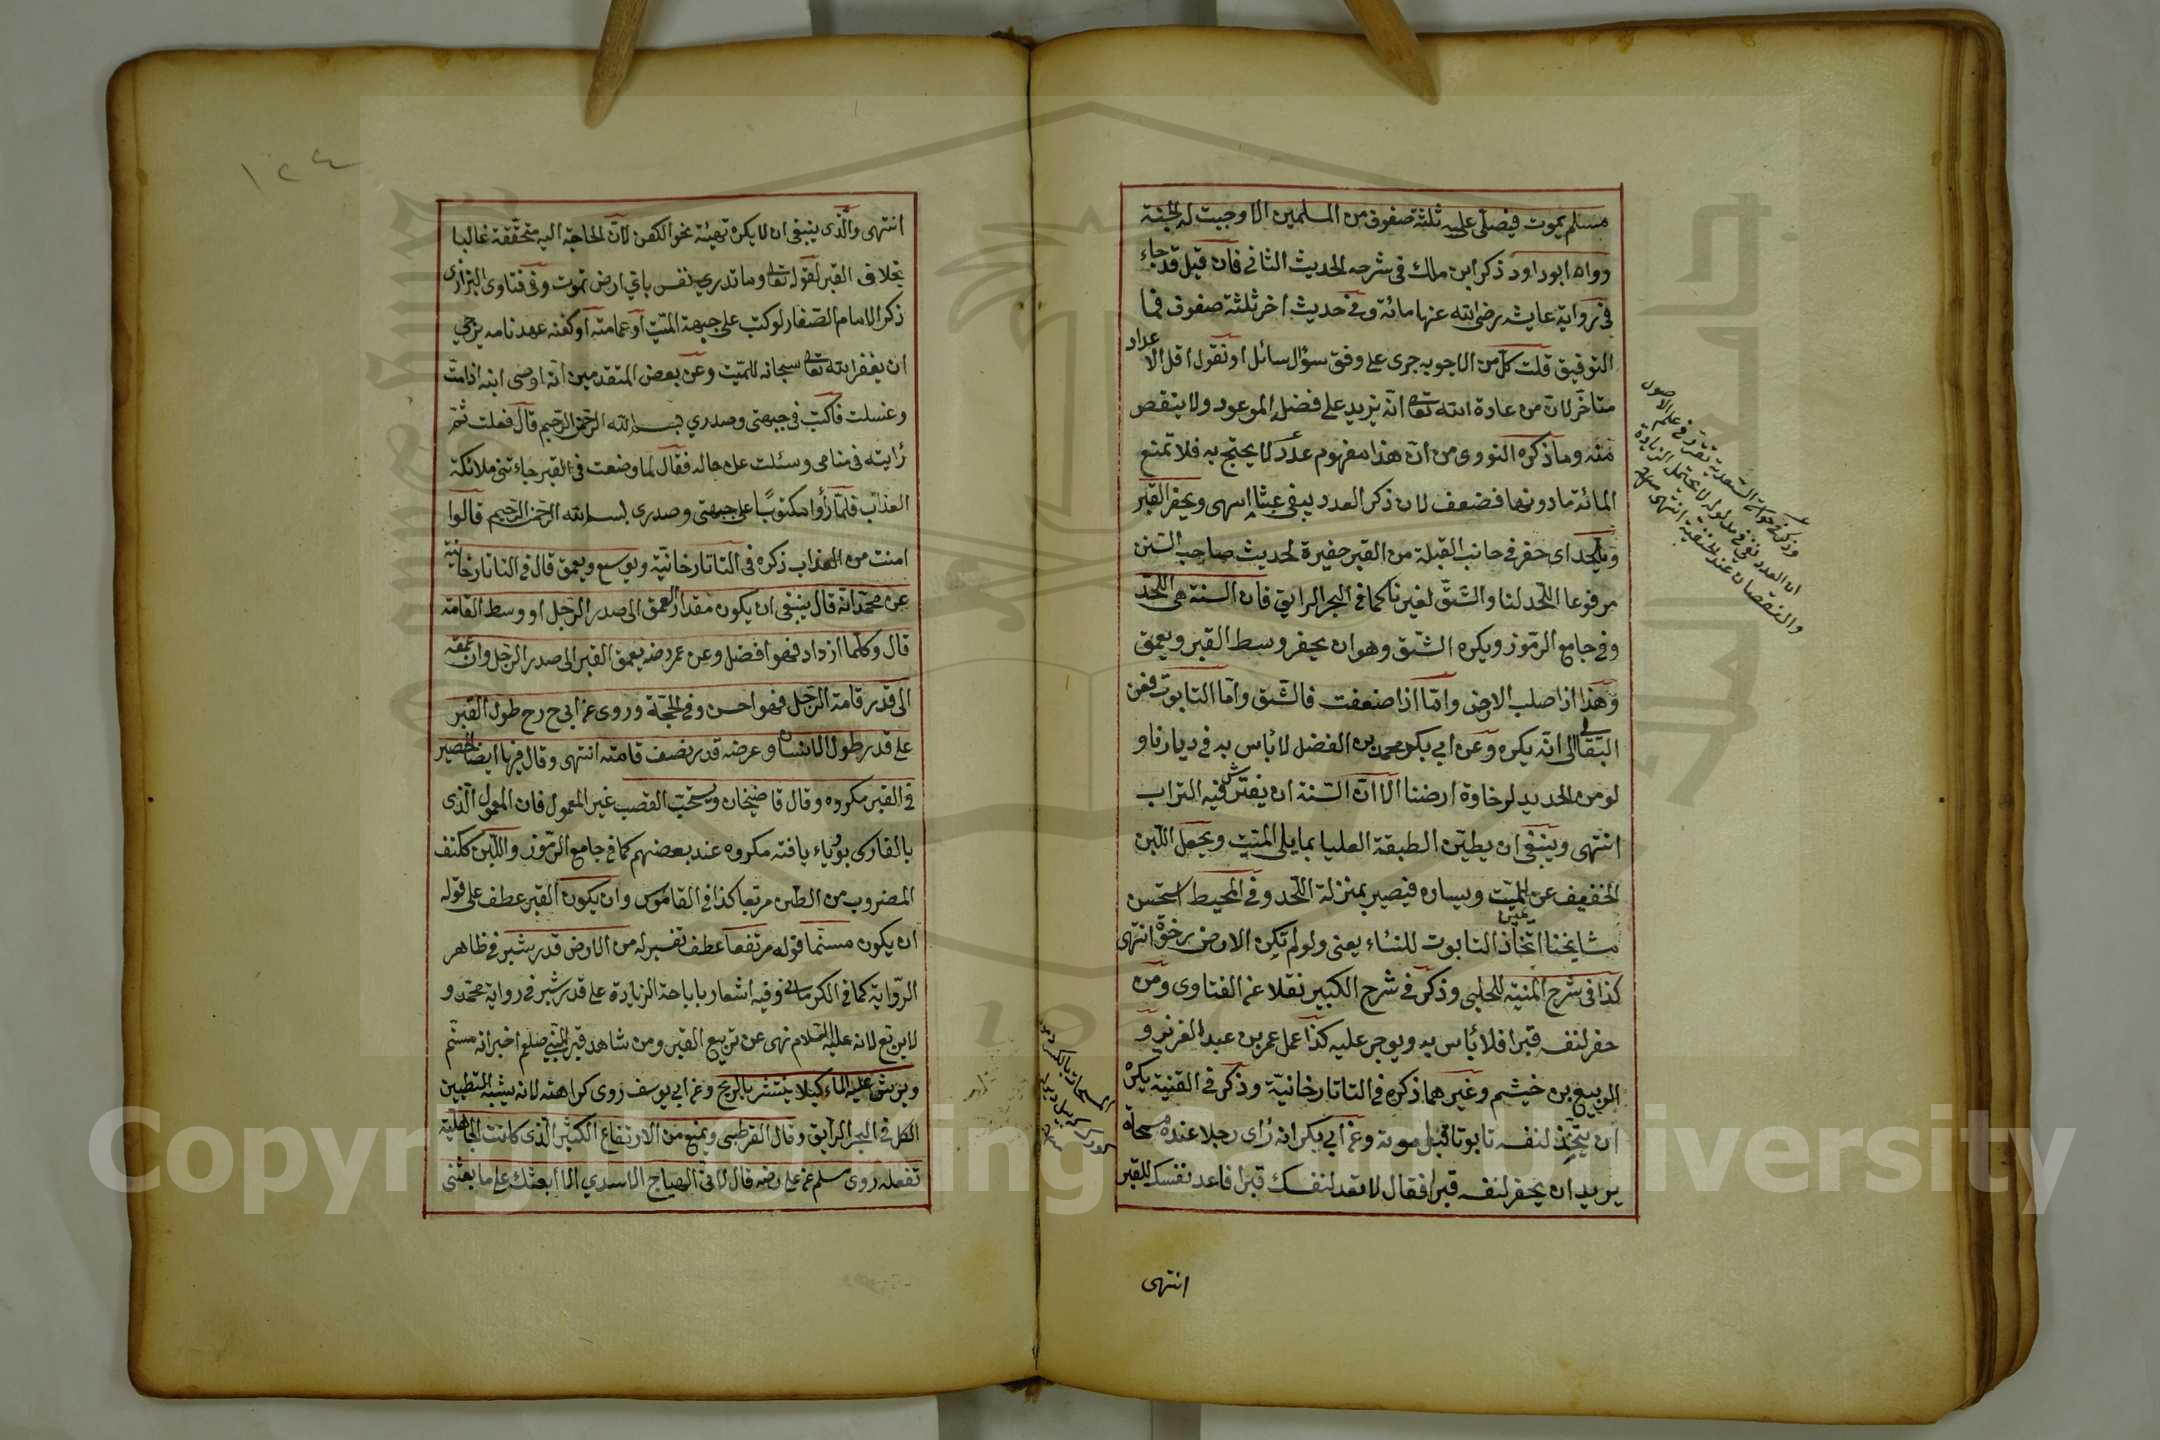 مسلم يموت فيصلى عليه ثلثة صفوف من المسلمين الا وجبت له الجنة
رواه ابوداود ذكر ابن ملك فى شرحه الحديث الثانى فان قيل قد جاء
فى رواية عايشه رضى الله عنها مائة وفى حديث اخر ثلثة صفوف فما
التوفيق قلت كل من الاجوبه جرى على وفق سؤال سائل او نقول اقل الاعداد
متاخر لان من عادة الله تعالى انه يزيد على فضله الموعود ولا ينقص
منه وما ذكره النووى من ان هذا مفهوم عدد لا يحتج به فلا تمنع
المائة ما دونها فضعف لان ذكر العدد يبقى عبثا انتهى ويحفر القبر
ويلحد اى حفر فى جانب القبلة من القبر حفيرة لحديث صاحب السنن
مرفوعا اللحد لنا والشق لغيرنا كما فى البحر الرايق فان السنة هى اللحد
وفى جامع الرموز ويكره الشق وهو ان يحفر وسط القبر ويعمق
وهذا اذا صلب الارض واما اذا ضعفت فالشق واما التابوت فعن
البقالى انه يكره وعن ابي بكر محمد بن الفضل لا بأس به فى ديارنا و
لو من الحديد لرخاوة ارضنا الا ان السنة ان يفترش فيه التراب
انتهى وينبغى ان يطين الطبقة العليا بما يلى الميت ويجعل اللبن
الخفيف عن يمين الميت ويساره فيصير بمنزلة اللحد وفى المحيط استحسن
مشايخنا اتخاذ التابوت للنساء يعنى ولو لم تكن الارض رخوة انتهى
كذا فى شرح المنية للحلبى وذكر فى شرح الكبير نقلا عن الفتاوى ومن
حفر لنفسه قبرا فلا بأس به ويوجر عليه كذا عمل عمر بن عبد العزيز و
الربيع بن خيثم وغيرهما ذكره فى التاتارخانية وذكر فى القنية يكره
ان يتخذ لنفسه تابوتا قبل موته وعن ابي بكر انه رأى رجلا عنده مسحاة
يريد ان يحفر لنفسه قبرا فقال لا تعد لنفسك قبرا فاعد نفسك للقبر
انتهى
ان العدد نص فى مدلوله لا يحتمل الزيادة
والنقصان عند الحنفية انتهى
١٢٤
انتهى والذى ينبغى ان لا يكره تهيئة نحو الكفن لان الحاجة اليه متحققة غالبا
بخلاف القبر لقوله تعالى وما تدري نفس باي ارض تموت وفى فتاوى البزازى
ذكر الامام الصفار لو كتب على جبهة الميت او عمامته او كفنه عهد نامه يرجى
ان يغفر الله تعالى سبحانه للميت وعن بعض المتقدمين انه اوصى ابنه اذا مت
وغسلت فاكتب فى جبهتى وصدري بسم الله الرحمن الرحيم قال فعلت ثم
رايته فى منامى وسئلت عن حاله فقال لما وضعت فى القبر جاءتنى ملائكة
العذاب فلما رأوا مكتوبا على جبهتى وصدرى بسم الله الرحمن الرحيم قالوا
امنت من العذاب ذكره فى التاتارخانية ويوسع ويعمق قال فى التاتارخانية
عن محمد انه قال ينبغى ان يكون مقدار العمق الى صدر الرجل او وسط القامة
قال وكلما ازداد فهو افضل وعن عمر رضه يعمق القبر الى صدر الرجل وان عمقه
الى قدر قامة الرجل فهو احسن وفى الحجة وروى عن ابي ح رح طول القبر
على قدر طول الانسان وعرضه قدر نصف قامته انتهى وقال فيها ايضا الحصير
فى القبر مكروه وقال قاضيخان ويستحب القصب غير المعمول فان المعمول الذى
بالفارسى بورياء بافته مكروه عند بعضهم كما فى جامع الرموز واللبن ككتف
المضروب من الطين مربعا كذا فى القاموس وان يكون القبر عطف على قوله
ان يكون مسنما قوله مرتفعا عطف تفسير له من الارض قدر شبر فى ظاهر
الرواية كما فى الكرمانى وفيه اشعار باباحة الزيادة على قدر شبر فى رواية محمد و
لا يربع لانه عليه السلام نهى عن تربيع القبر ومن شاهد قبر النبى صلعم اخبر انه مسنم
ويرش عليه الماء كيلا ينتشر بالريح وعن ابي يوسف روى كراهته لانه يشبه التطيين
الكل فى البحر الرايق وقال القرطبى ويمنع من الارتفاع الكثير الذى كانت الجاهلية
تفعله روى مسلم عن على رضه قال لابى الهياج الاسدي الا ابعثك على ما بعثنى
Copyright © King Saud University